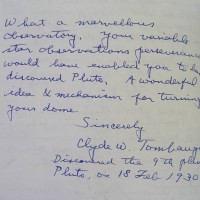 What a marvellous
observatory. Your variable
star observations perseverance
would have enabled you to have
discovered Pluto. A wonderful
idea & mechanism for turning
your dome.
Sincerely
Clyde W. Tombaugh
Discovered the 9th planet
Pluto, on 18 Feb 1930